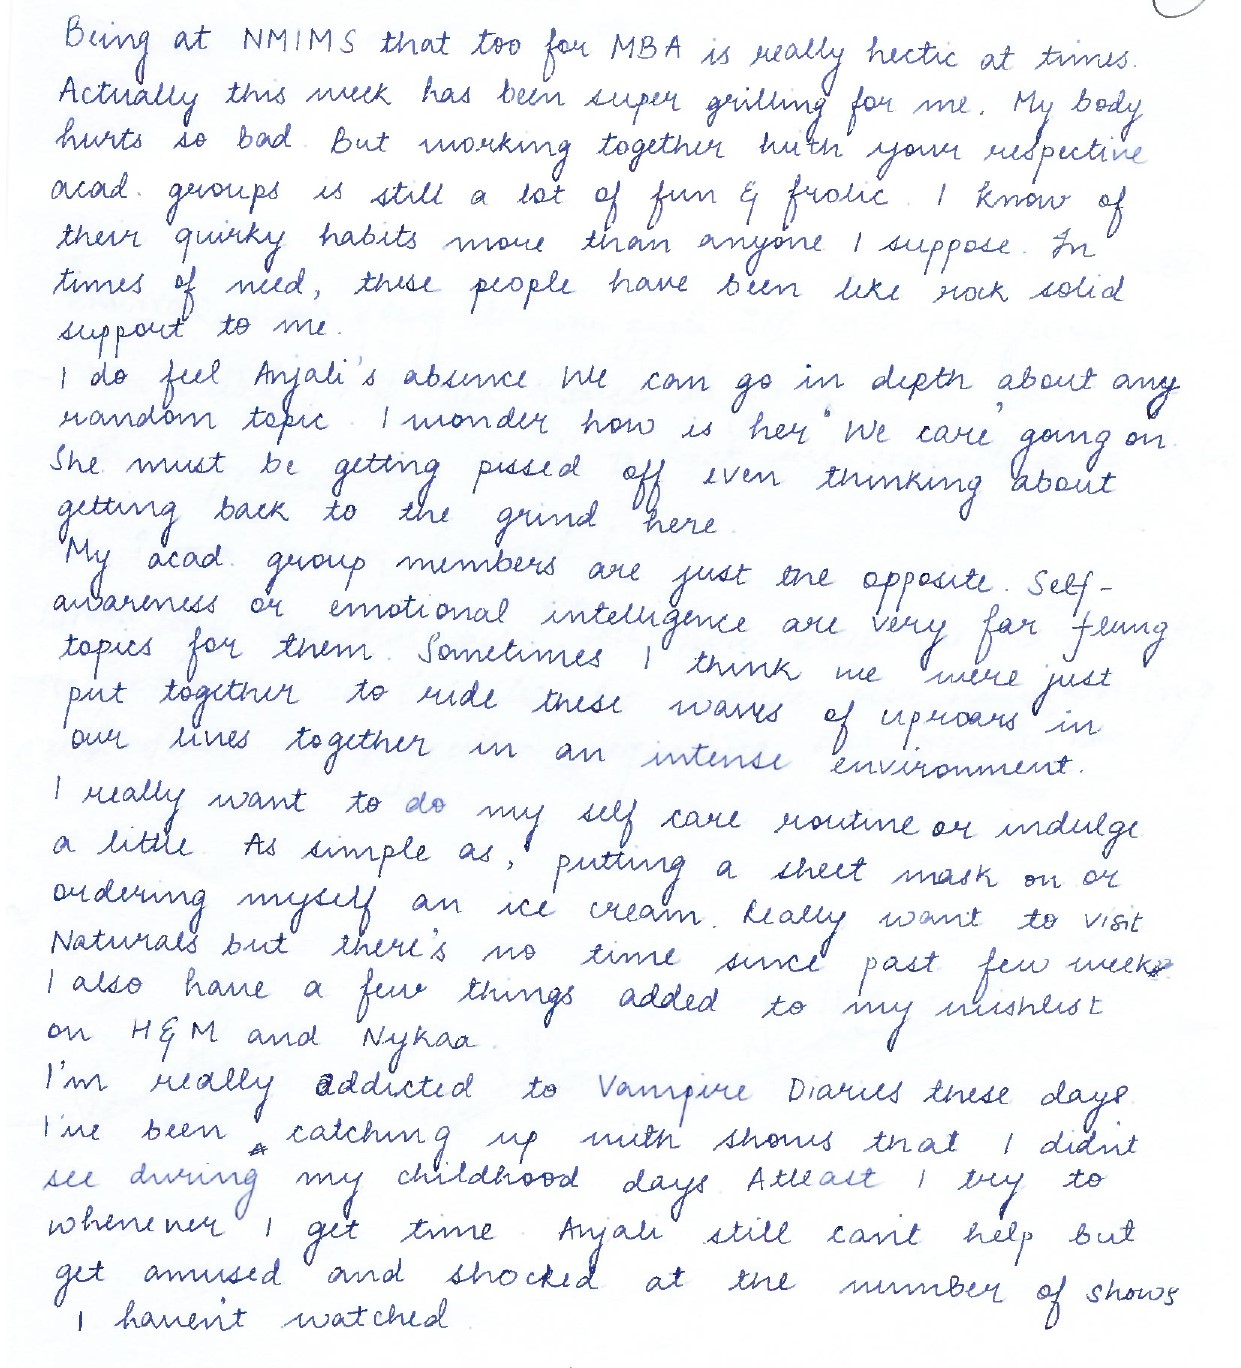 Being at NMIMS that too for MBA is really hectic at times.
Actually this week has been super grilling for me. My body
hurts so bad. But working together with your respective
acad. groups is still a lot of fun & frolic. I know of
their quirky habits more than anyone I suppose. In
times of need, these people have been like rock solid
support to me.
I do feel Anjali's absence. We can go in depth about any
random topic. I wonder how is her "We care" going on.
She must be getting pissed off even thinking about
getting back to the grind here.
My acad. group members are just the opposite. Self-
awareness or emotional intelligence are very far flung
topics for them. Sometimes I think we were just
put together to ride these waves of uproars in
our lives together in an intense environment.
I really want to do my self care routine or indulge
a little. As simple as, putting a sheet mask on or
ordering myself an ice cream. Really want to visit
Naturals but there's no time since past few weeks
I also have a few things added to my wishlist
on H&M and Nykaa.
I'm really addicted to Vampire Diaries these days
I've been catching up with shows that I didn't
see during my childhood days. Atleast I try to
whenever I get time. Anjali still can't help but
get amused and shocked at the number of shows
I haven't watched.